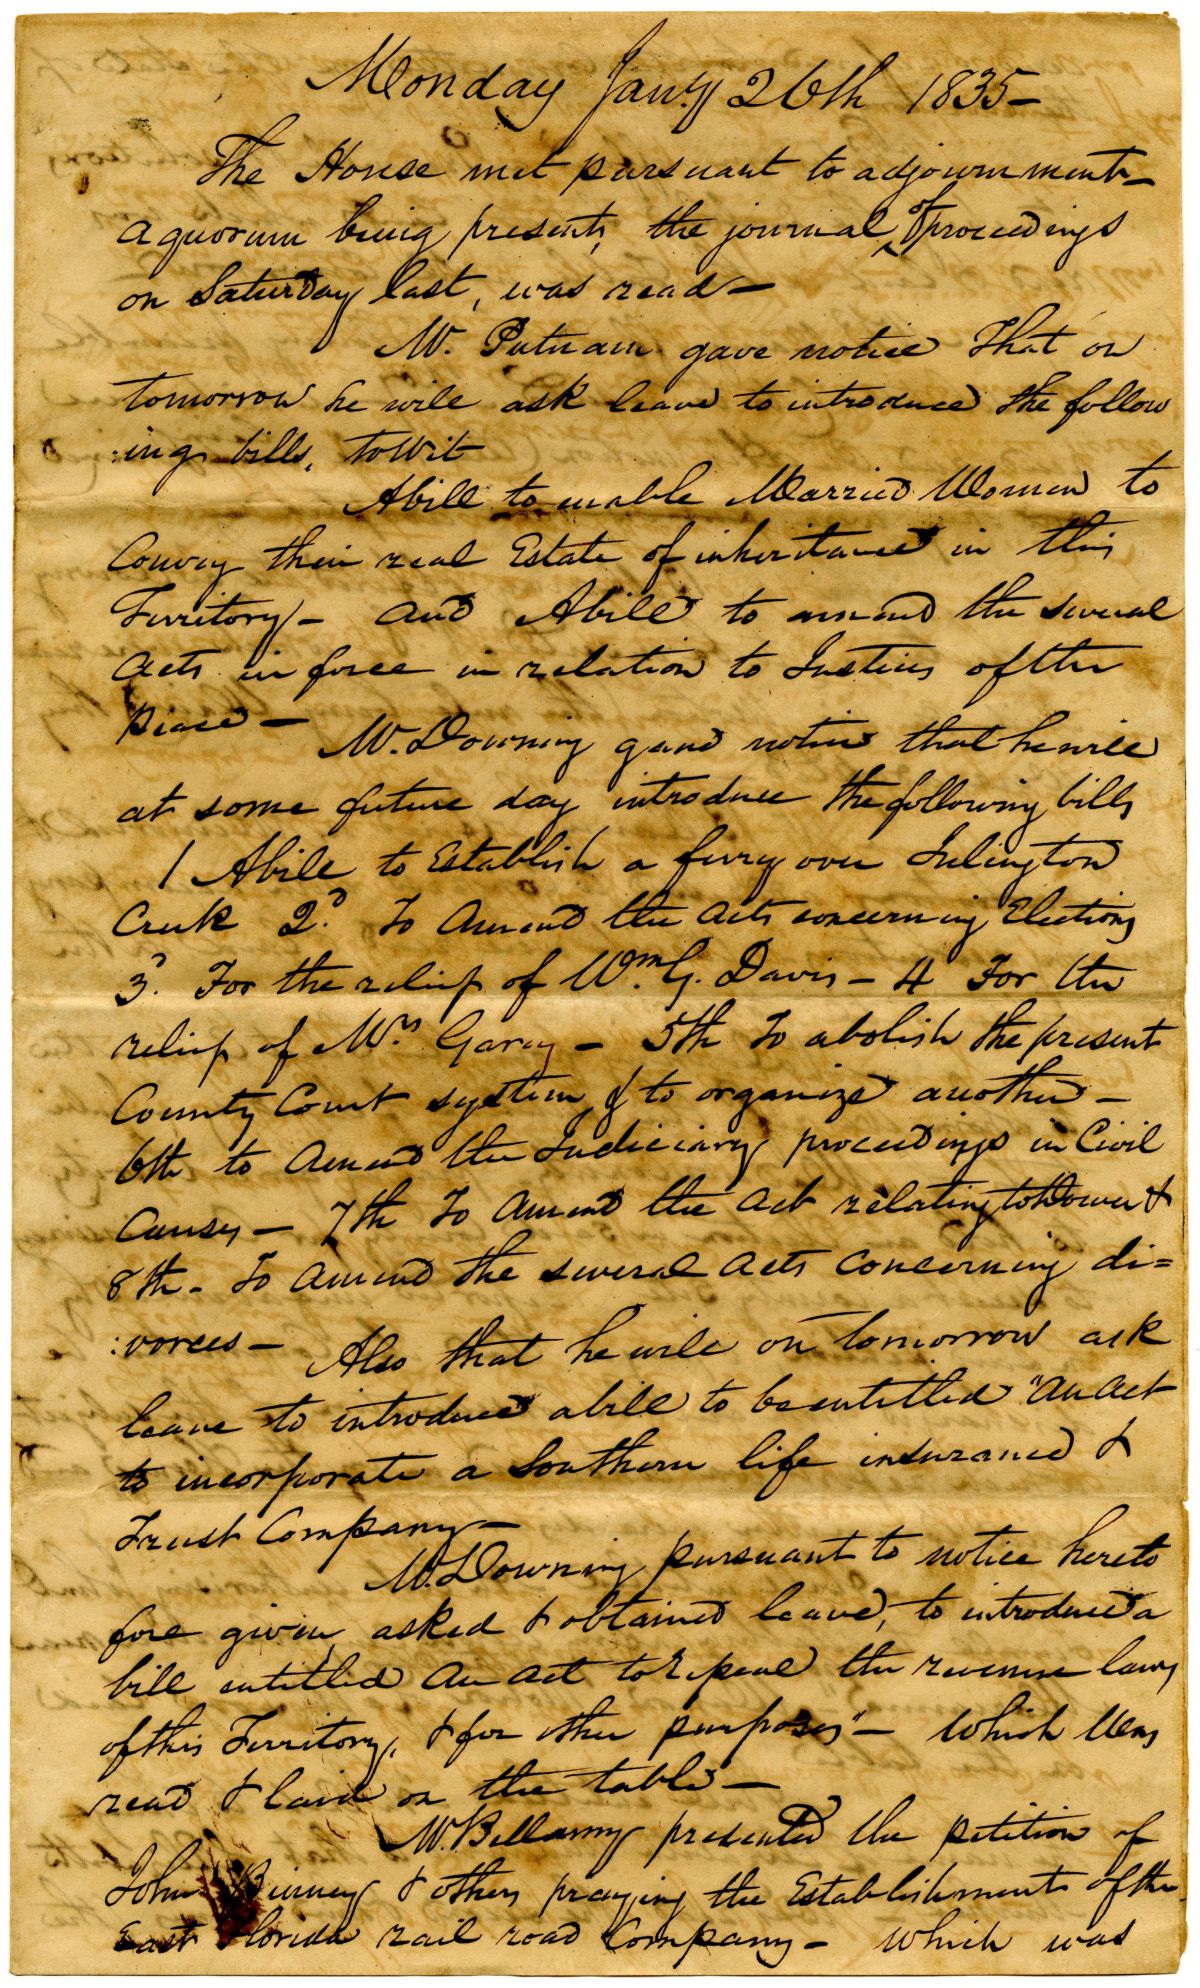 Monday Jany 26th 1835—
The House met pursuant to adjournment—
a quorum being present, the journal of proceedings
on Saturday last, was read—
Mr. Putnam gave notice that on
tomorrow he will ask leave to introduce the follow
:ing bills, towit
A bill to enable Married Women to
Convey their real Estate of inheritance in this
Territory— and A bill to amend the several
acts in force in relation to Justices of the
peace—
Mr. Downing gave notice that he will
at some future day introduce the following bills
1 A bill to Establish a ferry over
Creek 2d. To Amend the acts concerning Elections
3d. For the relief of Wm. G. Davis— 4 For the
relief of Mrs Garey— 5th To abolish the present
County Court system, & to organize another—
6th to Amend the Judiciary proceedings in Civil
Causes— 7th To Amend the act relating to Dower &
8th— To amend the several acts concerning di=
:vorces—
Also that he will on tomorrow ask
leave to introduce a bill to be entitled "An act
to incorporate a Southern life insurance &
Trust Company—
Mr. Downing pursuant to notice hereto
fore given, asked & obtained leave, to introduce a
bill entitled An act to repeal the revenue laws
of this Territory, & for other purposes"— Which was
read & laid on the table—
Mr. Bellamy presented the petition of
John & others praying the Establishment of the
East Florida rail road Company— which was